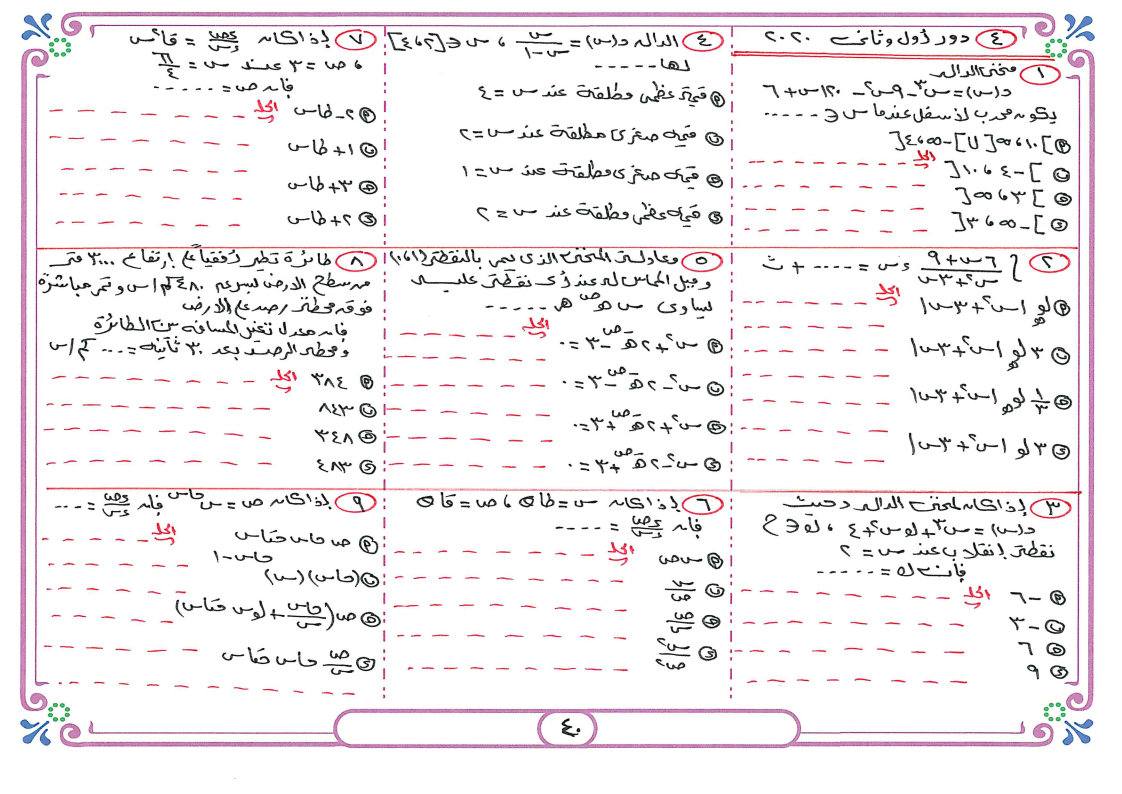 ٤ دور أول وثانى ٢٠٢٠
١ منحنى الداله
د(س) = س٣ - ٩س٢ - ١٢٠س + ٦
يكون محدب لأسفل عندما س ∈ .....
P ]١٠، ∞[ U ]-∞، ٤[
ب ]-٤، ١٠[
ج ]٣، ∞[
د ]-∞، ٣[
الحل
٢ ∫ (٦س + ٩)/(س٢ + ٣س) ءس = .... + ث
P لو_هـ |س٢ + ٣س|
ب ٣ لو_هـ |س٢ + ٣س|
ج ١/٣ لو_هـ |س٢ + ٣س|
د ٣ لو |س٢ + ٣س|
الحل
٣ إذا كان لمنحنى الداله د حيث
د(س) = س٣ + ك س٢ + ٤ ، ك ∈ ح
نقطة إنقلاب عند س = ٢
فإن ك = .....
P -٦
ب -٣
ج ٦
د ٩
الحل
٤ الداله د(س) = س/(س - ١) ، س ∈ [٢، ٤]
لها .....
P قيمة عظمى مطلقة عند س = ٤
ب قيمه صغرى مطلقة عند س = ٢
ج قيمه صغرى مطلقة عند س = ١
د قيمه عظمى مطلقة عند س = ٢
٥ معادلة المنحنى الذى يمر بالنقطة (١، ٠)
وميل المماس له عند أى نقطة عليه
يساوى س هـ^ص هو .....
P س٢ + ٢هـ^-ص - ٣ = ٠
ب س٢ - ٢هـ^-ص - ٣ = ٠
ج س٢ + ٢هـ^-ص + ٣ = ٠
د س٢ - ٢هـ^-ص + ٣ = ٠
الحل
٦ إذا كان س = طا θ ، ص = قا θ
فإن ءص/ءس = ....
P س ص
ب س/ص
ج ص/س
د س٢/ص٢
الحل
٧ إذا كان ءص/ءس = قا٢س
، ص = ٣ عند س = π/٤
فإن ص = .....
P ٢ - طاس
ب ١ + طاس
ج ٣ + طاس
د ٢ + طاس
الحل
٨ طائرة تطير أفقياً على إرتفاع ٣٠٠٠ متر
من سطح الارض بسرعه ٤٨٠ كم/س وتمر مباشرة
فوق محطة رصد على الارض
فإن معدل تغير المسافه بين الطائرة
ومحطة الرصد بعد ٣٠ ثانيه = ... كم/س
P ٣٨٤
ب ٨٤٣
ج ٣٤٨
د ٤٨٣
الحل
٩ إذا كان ص = س^جاس فإن ءص/ءس = ...
P ص جاس جتاس
ب (جاس)(س)^جاس-١
ج ص(جاس/س + لو س جتاس)
د ص/س جاس جتاس
الحل
٤٠